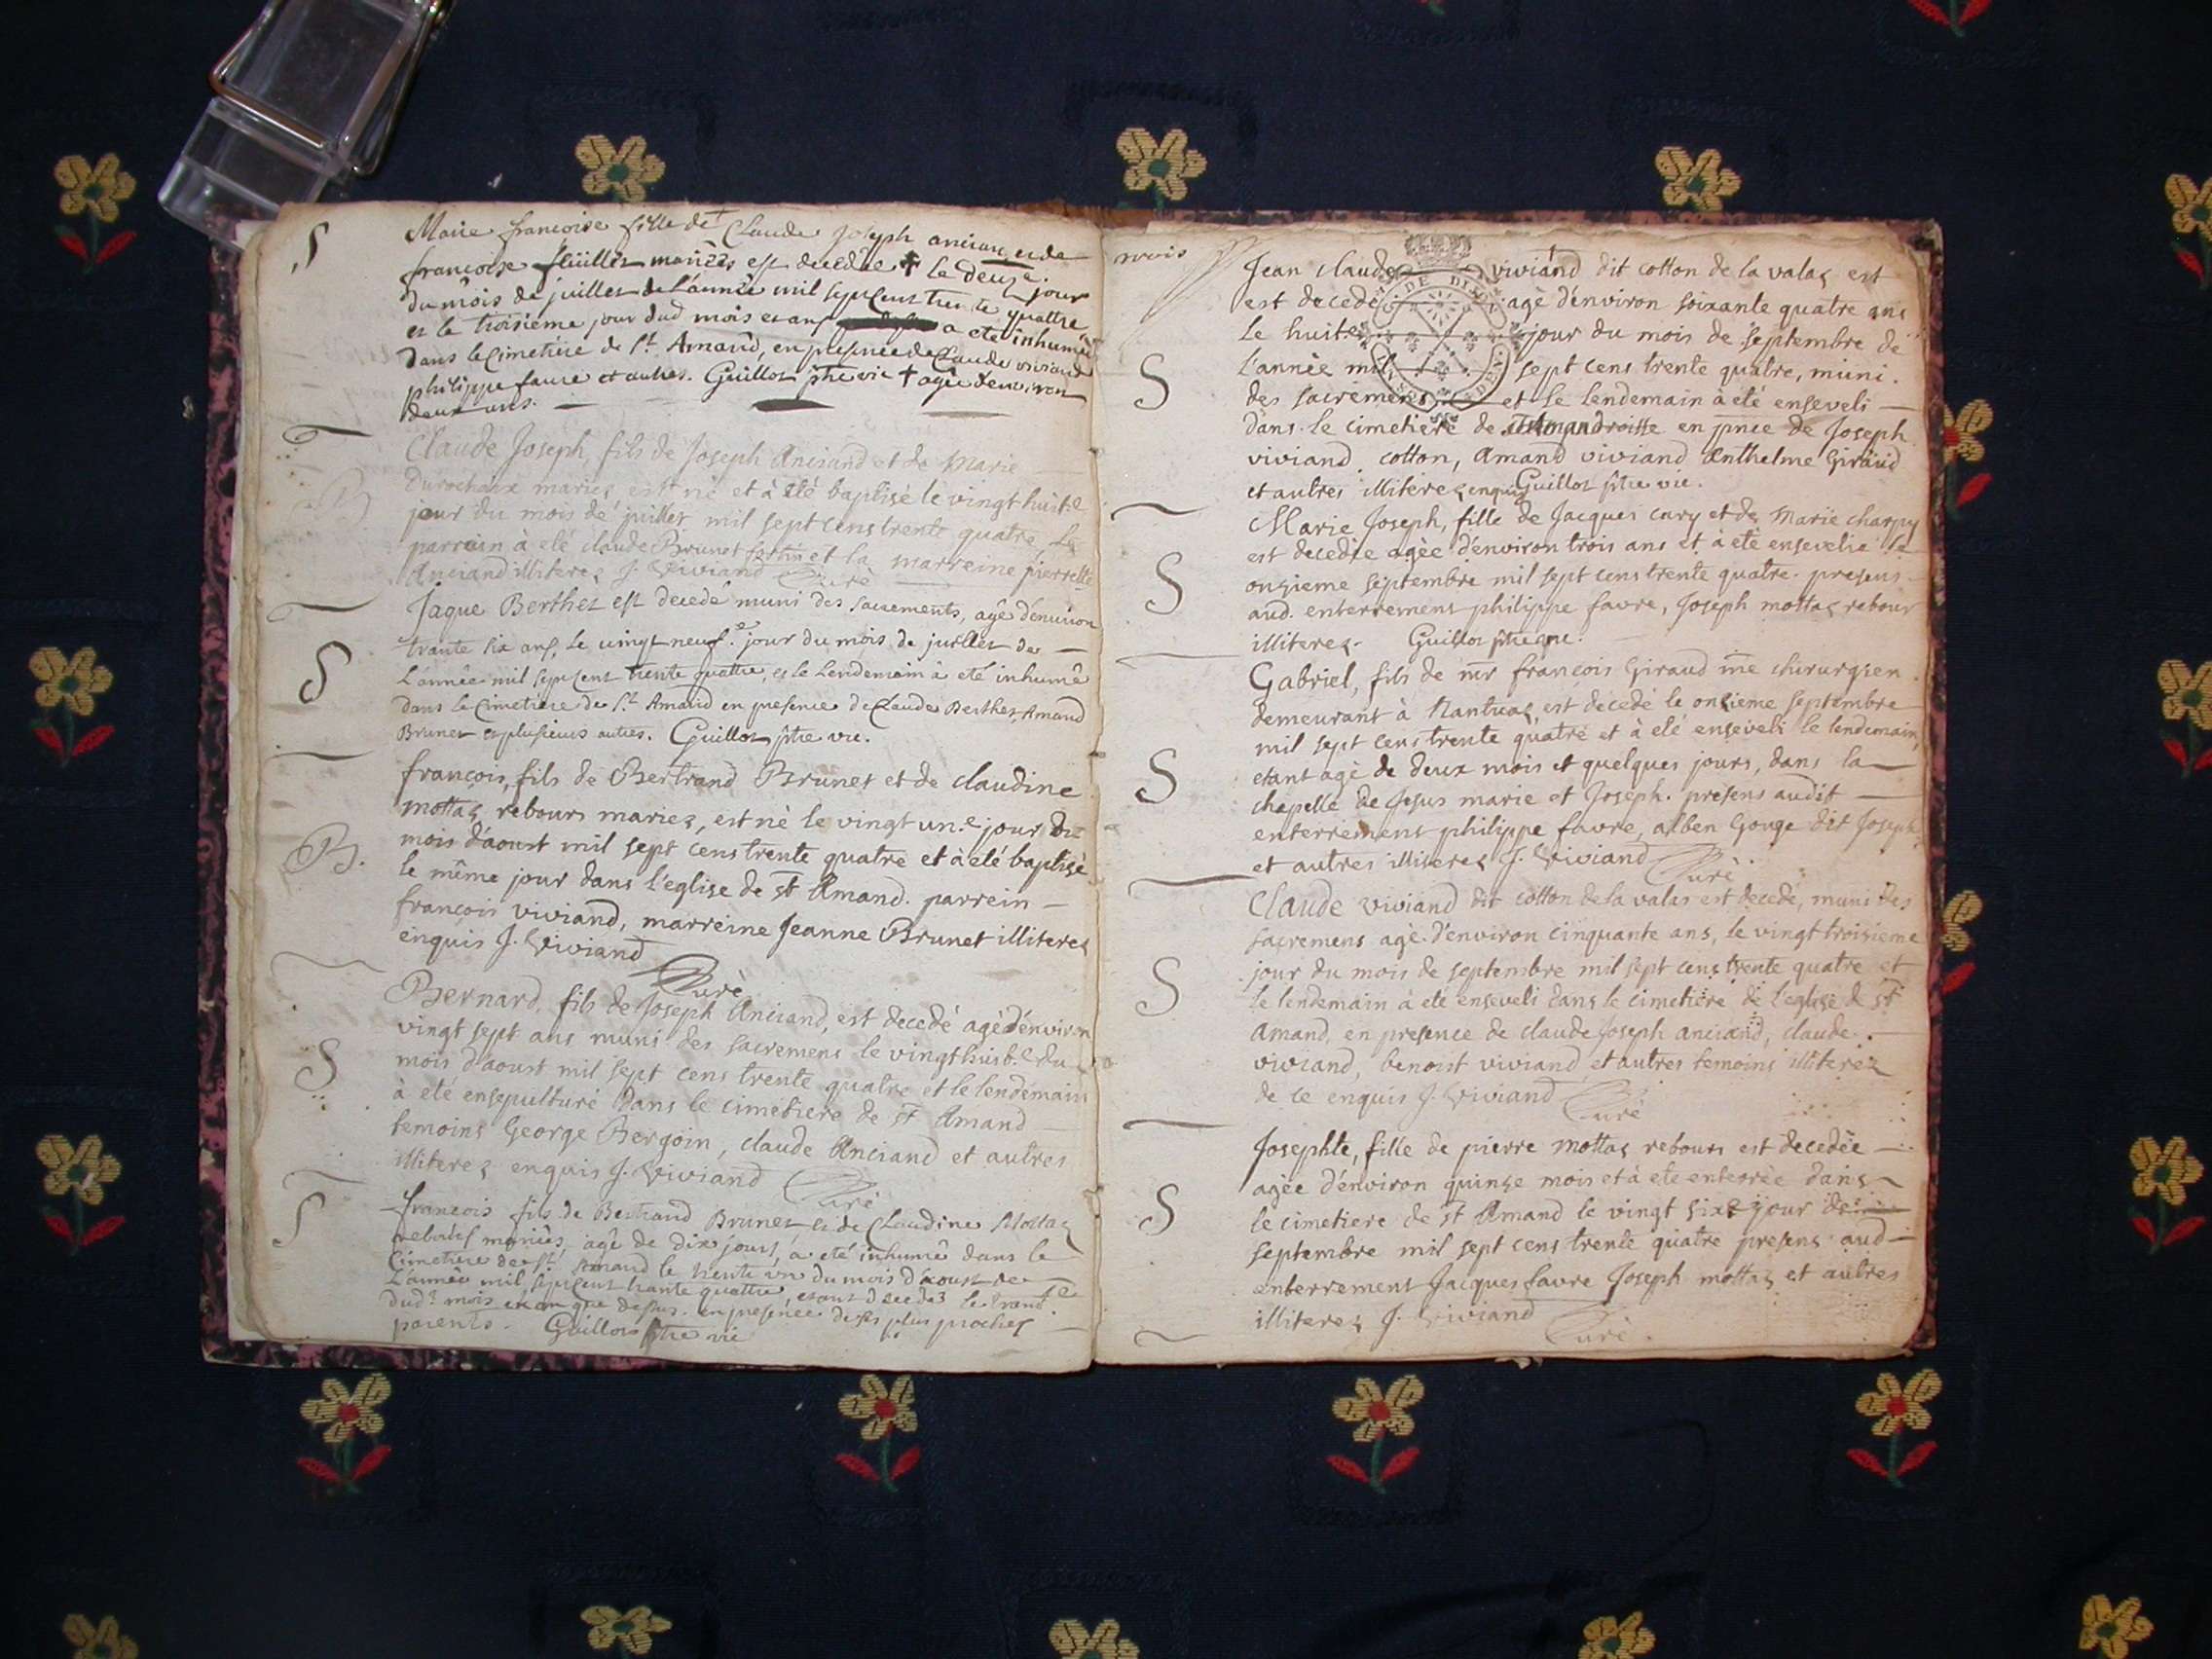 S
Marie francoise fille de Claude Joseph anciand et de
francoise mariés est decedée + le deuze. jour
du mois de juillet de l'année mil sept cent trente quattre
et le troisieme jour dud mois et an a eté inhumée
dans le cimetière de St. Amand, en presence de Claude viviand
philippe favre et autres. Guillot ptre vic + agée d'environ
deux ans.
B
Claude Joseph, fils de Joseph Anciand et de Marie
Durochaix mariez, est né et à eté baptisé le vingt huit.e
jour du mois de juillet mil sept cens trente quatre, Le
parrain à eté claude Brunet et la marreine pierrette
Anciand illiterez J. Viviand Curé
S
Jaque Berthet est decede muni des sacrements, agé d'environ
trante six ans, Le vingt neuf.e jour du mois de juillet de
L'année mil sept cent trente quattre, et le Lendemain à eté inhumé
dans le Cimetière de St. Amand en presence de Claude Berthet, Amand
Brunet et plusieurs autres. Guillot ptre vic.
B.
françois, fils de Bertrand Brunet et de claudine
mottaz rebours mariez, est né le vingt un.e jour du
mois d'aoust mil sept cens trente quatre et à eté baptisé
le même jour dans l'eglise de st Amand. parrein
françois viviand, marreine Jeanne Brunet illiterez
enquis J. Viviand
Curé
S
Bernard, fils de Joseph Anciand, est decedé agé d'environ
vingt sept ans muni des sacremens le vingt huit.e du
mois d'aoust mil sept cens trente quatre et le lendemain
à eté ensepulturé dans le cimetiere de st Amand
temoins George Bergoin, claude Anciand et autres
illiterez enquis J. Viviand Curé
S
francois fils de Bertrand Brunet et de Claudine Mottaz
rebours mariés, agé de dix jours, a eté inhumé dans le
Cimetiere de St. Amand le trente un du mois d'aoust de
L'année mil sept cent trante quattre, etant decedez le trent.e
dud.t mois et an que dessus. en presence de ses plus proches
parents. Guillot ptre vic
Jean claude viviand dit cotton de la valaz est
est decedé agé d'environ soixante quatre ans
Le huit.e jour du mois de septembre de
L'année mil sept cens trente quatre, muni.
S
des sacremens et le lendemain à eté enseveli
dans le cimetiere de en pnce de Joseph
viviand cotton, Amand viviand Anthelme Giraud
et autres illiterez enquis Guillot ptre vic.
Marie Joseph, fille de Jacques cury et de Marie charpy
est decedée agée d'environ trois ans et à eté ensevelie le
S
onzieme septembre mil sept cens trente quatre. presens
aud. enterrement philippe favre, Joseph mottaz rebour
illiterez. Guillot ptre vic.
Gabriel, fils de mr françois Giraud me chirurgien
demeurant à Nantuaz, est decedé le onzieme septembre
mil sept cens trente quatre et à eté enseveli le lendemain,
S
etant agé de deux mois et quelques jours, dans la
chapelle de Jesus marie et Joseph. presens audit
enterrement philippe favre, alben Gouge dit Joseph
et autres illiterez J. Viviand Curé
Claude viviand dit cotton de la valas est decedé, muni des
sacremens agé d'environ cinquante ans, le vingt troisieme
S
jour du mois de septembre mil sept cens trente quatre et
le lendemain à eté enseveli dans le cimetiere de l'eglise de st
Amand, en presence de claude Joseph anciand, claude
viviand, benoist viviand, et autres temoins illiterez
de ce enquis J. Viviand Curé
Josephte, fille de pierre mottaz rebours est decedée
agée d'environ quinze mois et à eté enterrée dans
S
le cimetiere de st Amand le vingt six.e jour de
septembre mil sept cens trente quatre presens aud
enterrement Jacques favre Joseph mottaz et autres
illiterez J. Viviand
Curé.